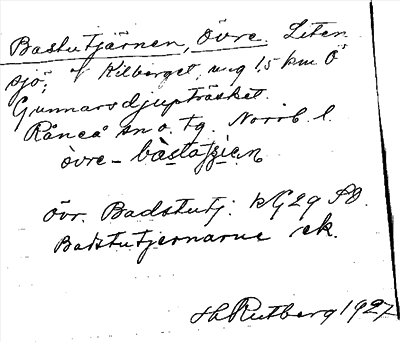 Bastutjärnen, Övre. Liten
sjö; i Kilberget, ung 1,5 km Ö
Gunnarsdjupträsket.
Råneå sn o. tg. Norrb. l.
övre- båstaʃʃien
övr. Badstutj. kG29 SO.
Badstutjernarne ek.
Rutberg 1927